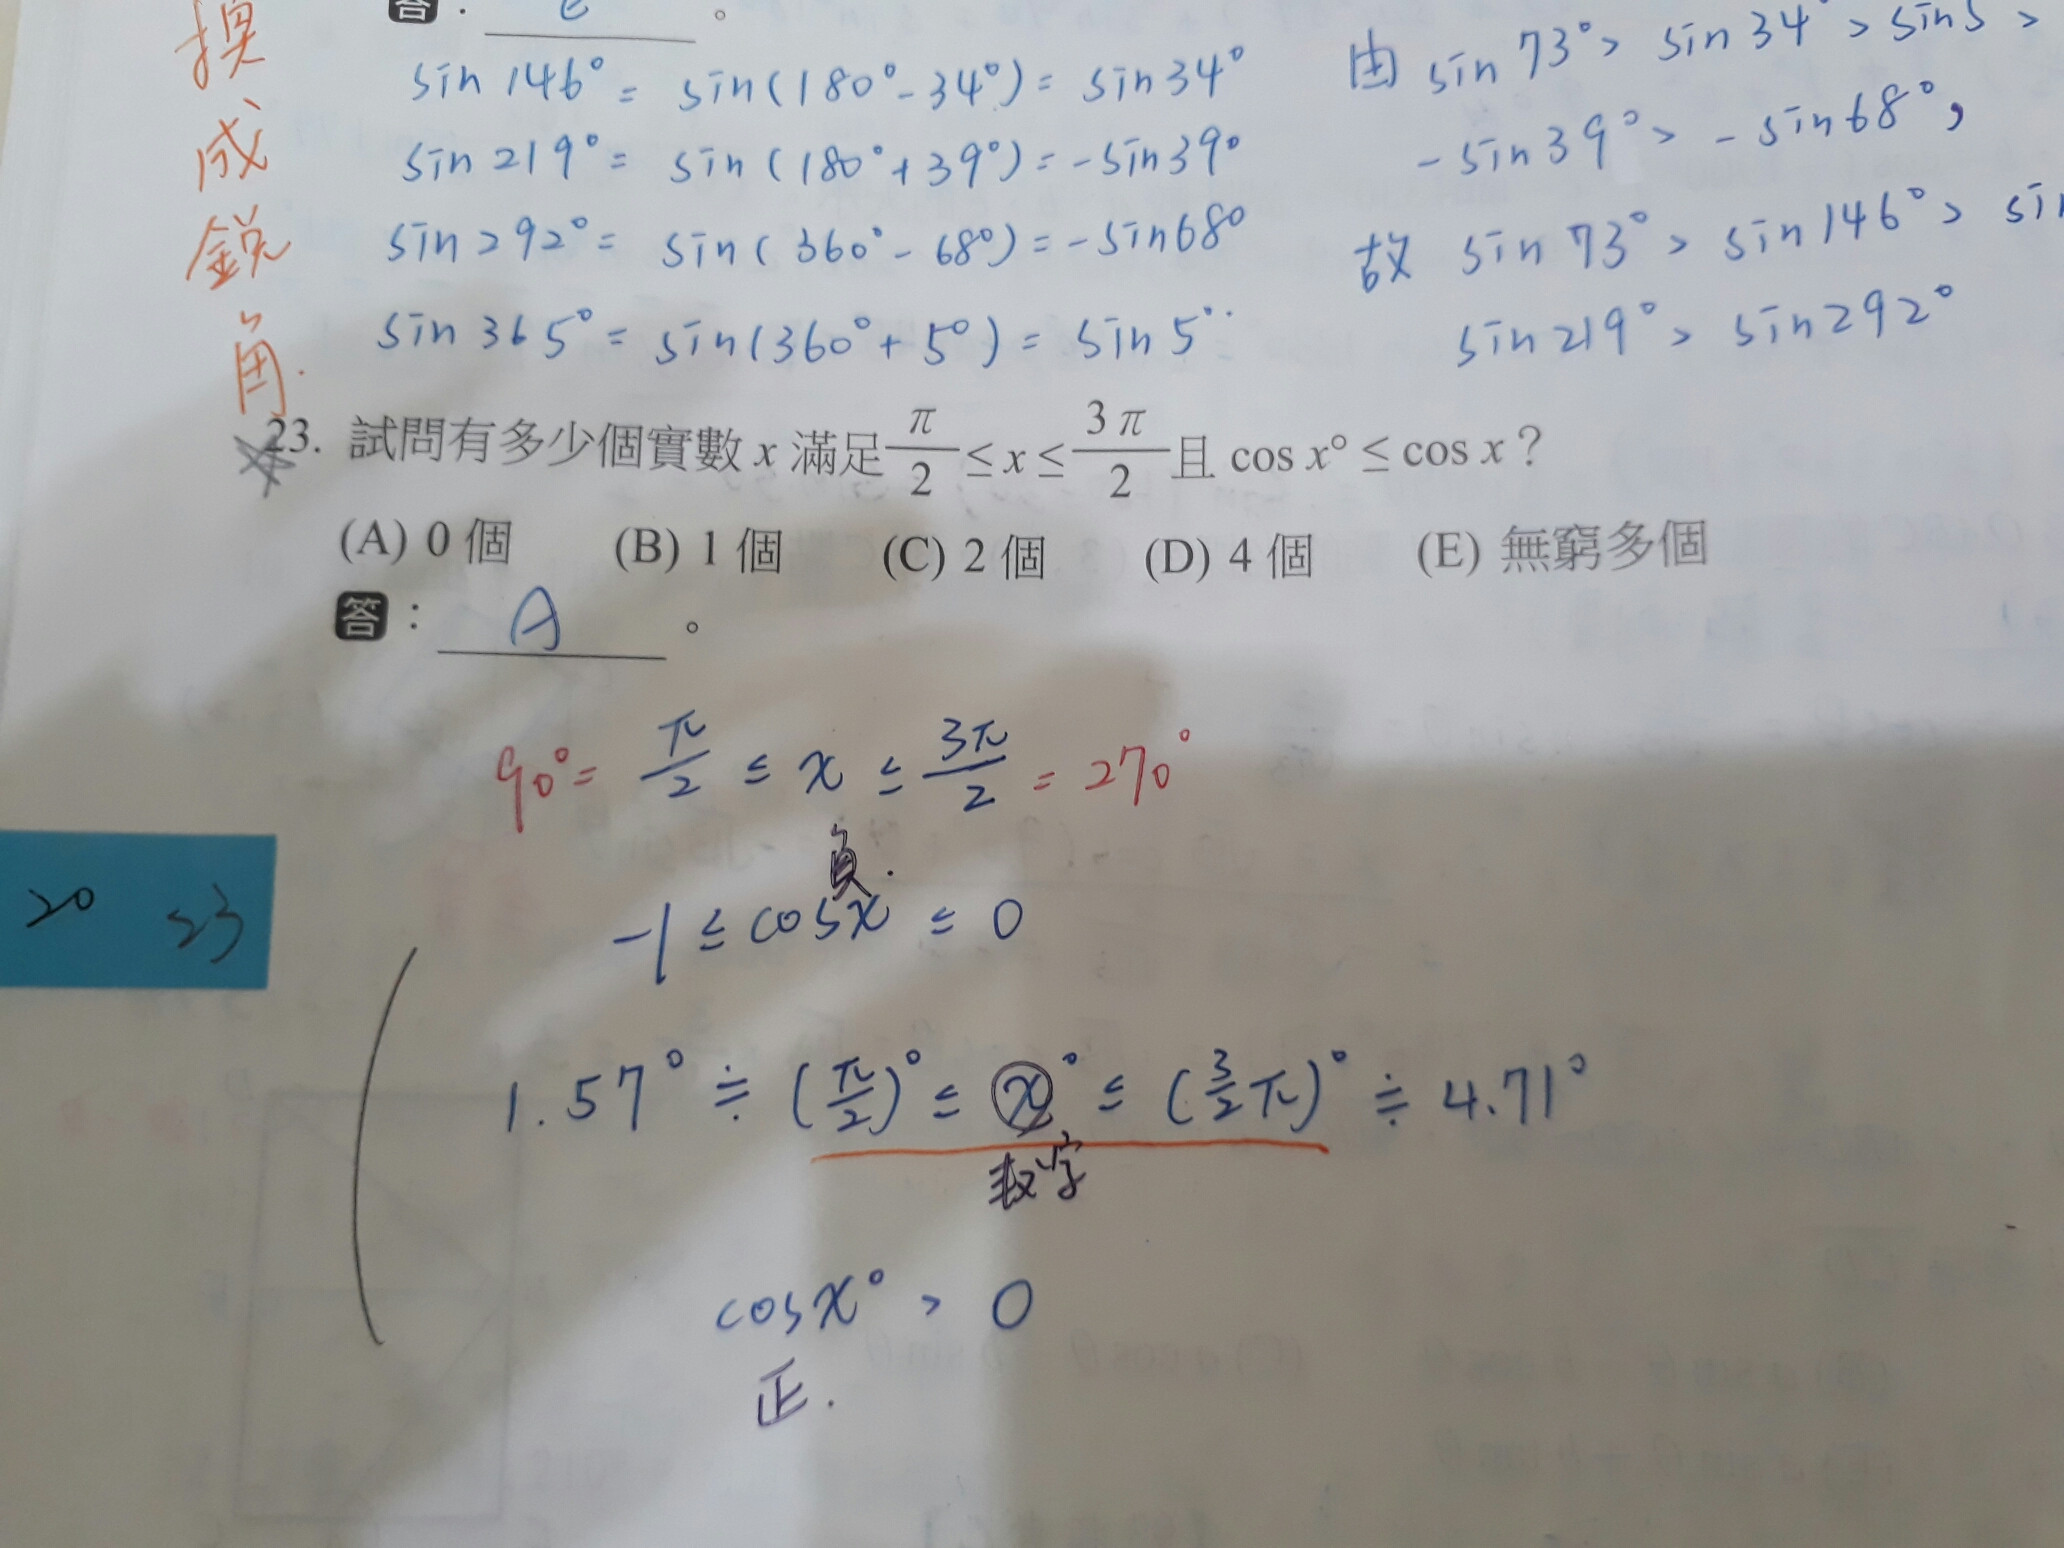 換成銳角.
答：
sin 146° = sin(180° - 34°) = sin 34°
sin 219° = sin(180° + 39°) = -sin 39°
sin 292° = sin(360° - 68°) = -sin 68°
sin 365° = sin(360° + 5°) = sin 5°
由 sin 73° > sin 34° > sin 5 >
-sin 39° > -sin 68°,
故 sin 73° > sin 146° > sin
sin 219° > sin 292°
23. 試問有多少個實數 x 滿足 π/2 ≤ x ≤ 3π/2 且 cos x° ≤ cos x？
(A) 0 個 (B) 1 個 (C) 2 個 (D) 4 個 (E) 無窮多個
答：A。
90° = π/2 ≤ x ≤ 3π/2 = 270°
負.
-1 ≤ cos x ≤ 0
20 23
1.57° ≒ (π/2)° ≤ x° ≤ (3/2 π)° ≒ 4.71°
数字
cos x° > 0
正.